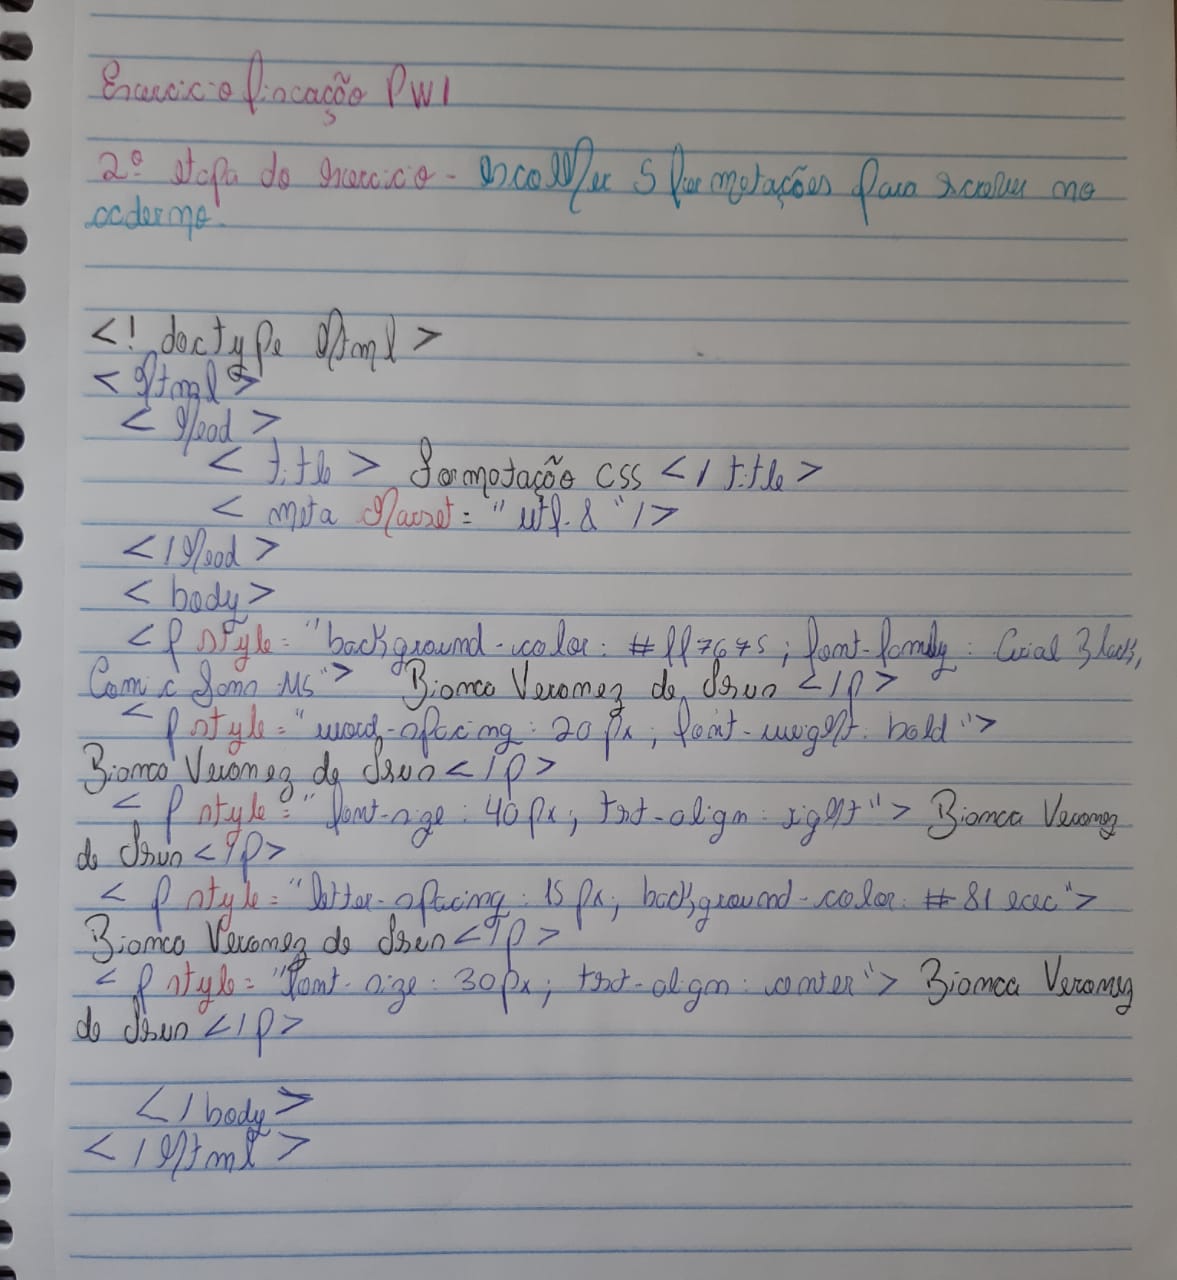 Exercicio fixação PW1
2º etapa do exercicio - escolher 5 formatações para escrever no
caderno.
<! doctype html >
< html >
< head >
< title > Formatação CSS </ title >
< meta charset = "utf-8"/>
</head >
< body >
<p style= "background-color: #ff7675; font-family: Arial Black,
Comic Sans MS"> Bianca Veronez de
< p style= "word-spacing: 20px; font-weight: bold">
Bianca Veronez de </p>
< p style= "font-size: 40px; text-align: right"> Bianca Veronez
de </p>
< p style= "letter-spacing: 15px; background-color: #81ecec">
Bianca Veronez de </p>
< p style= "font-size: 30px; text-align: center"> Bianca Veronez
de </p>
</ body >
</ html >